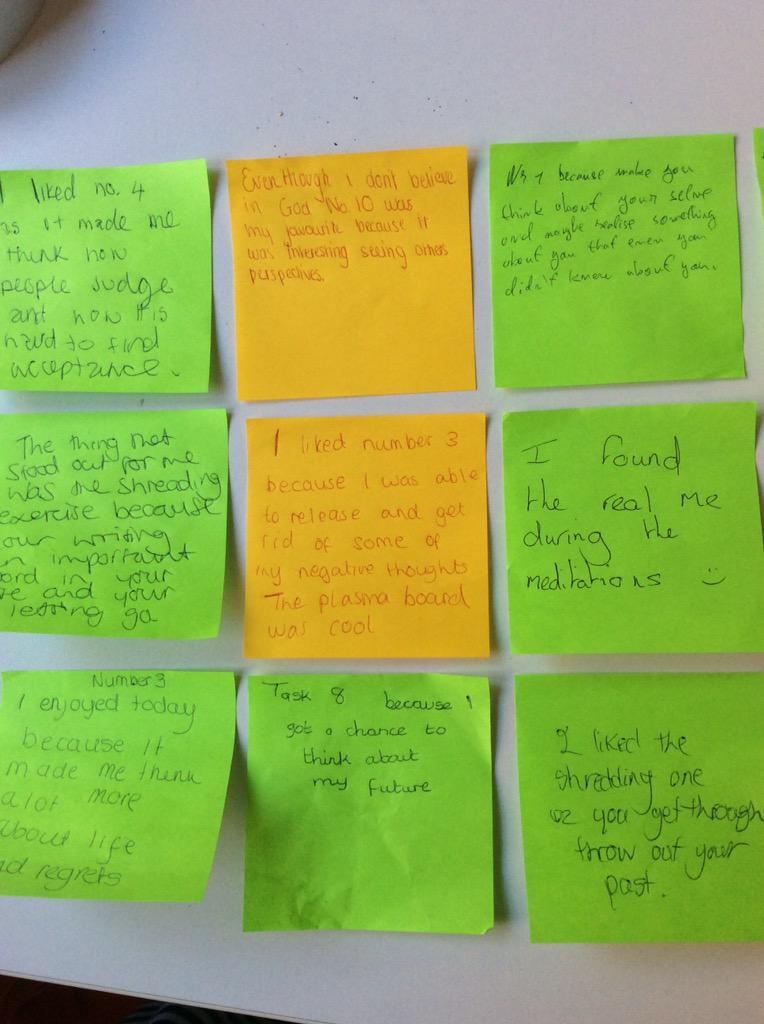 I liked no. 4
as it made me
think how
people Judge
and how it is
hard to find
acceptance.
Eventhough I dont believe
in God No.10 was
my favourite because it
was interesting seeing others
perspectives.
Nr 1 because make you
think about your selve
and maybe realise something
about you that even you
didn't know about you.
The thing that
Stood out for me
was the Shreading
exercise because
our writing
n important
ord in your
e and your
letting go
I liked number 3
because I was able
to release and get
rid of some of
my negative thoughts
The plasma board
was cool
I found
the real me
during the
meditations
Number 3
I enjoyed today
because it
made me think
a lot more
about life
nd regrets
Task 8 because I
got a chance to
think about
my future
I liked the
shredding one
oz you get through
throw out your
past.